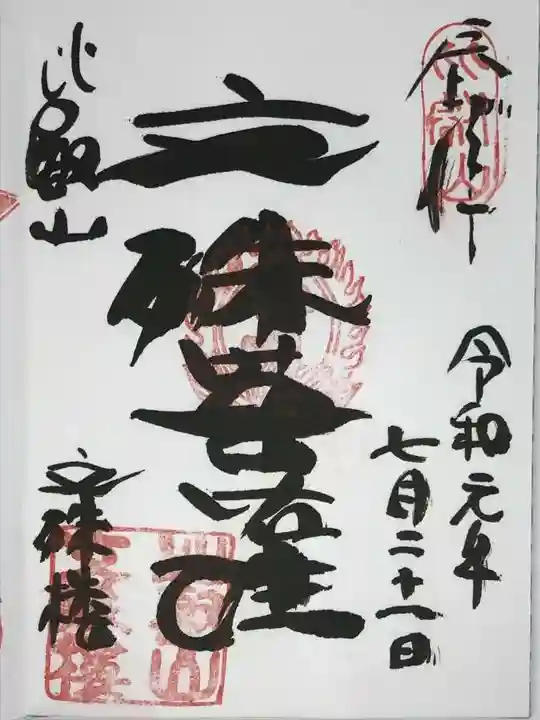 奉拝
令和元年
七月二十一日
文殊菩薩
比叡山
文殊楼